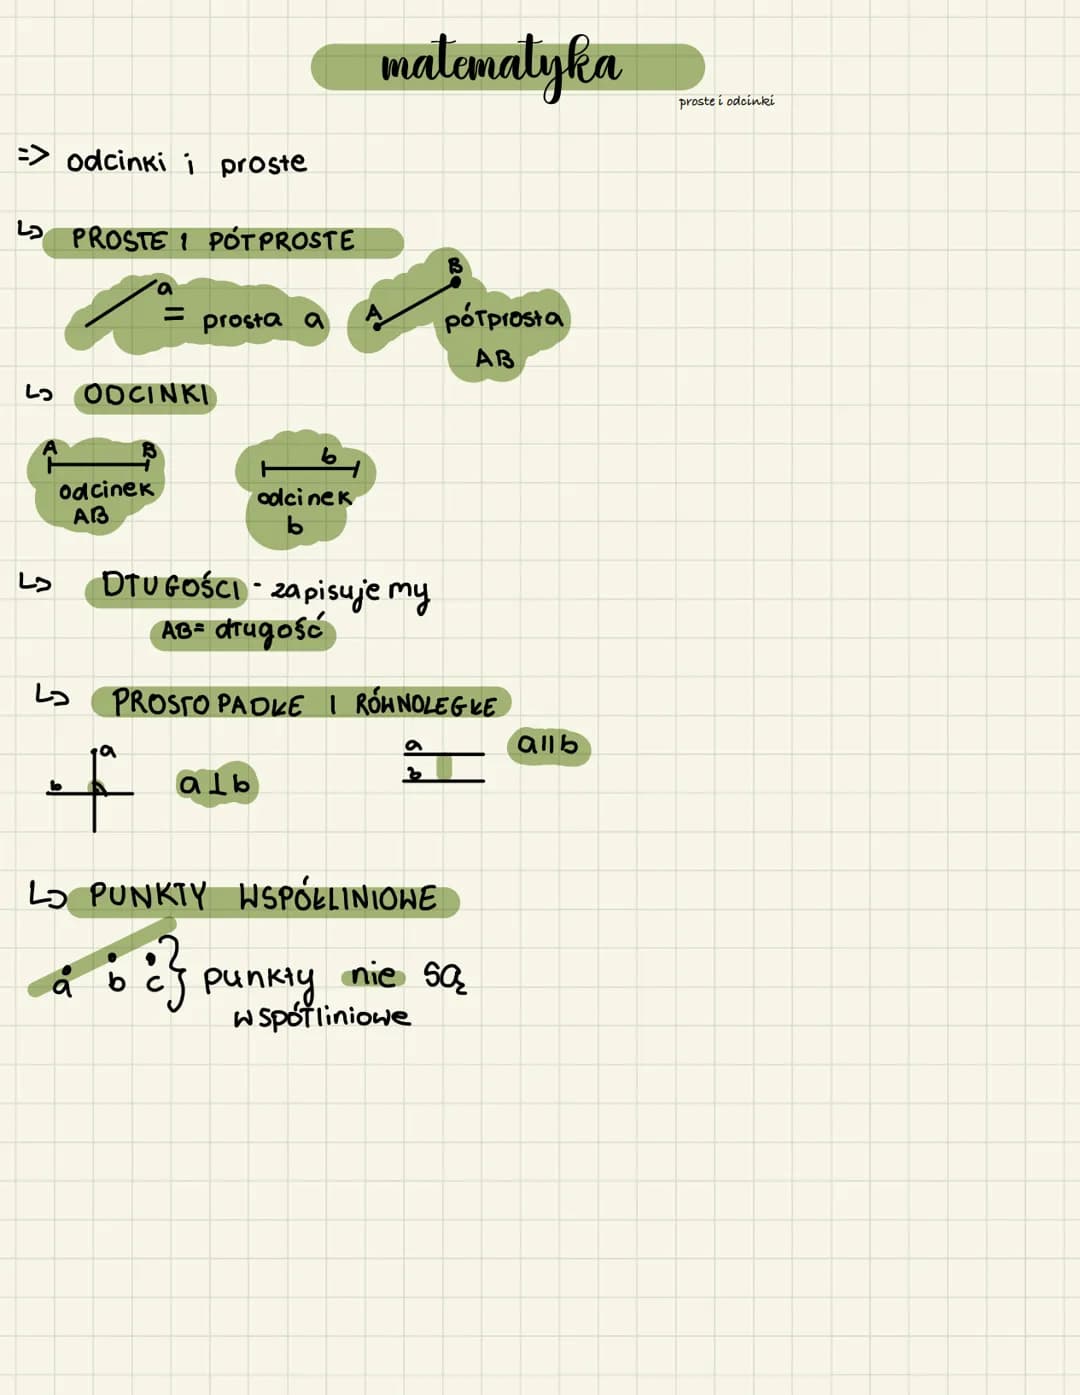 matematyka
proste i odcinki
=> odcinki i proste
↳ PROSTE I PÓŁPROSTE
a
= prosta a
A B
półprosta
AB
↳ ODCINKI
A B
odcinek
AB
b
odcinek
b
↳ DŁUGOŚCI - zapisujemy
AB= długość
↳ PROSTOPADŁE I RÓWNOLEGŁE
a
b
a⊥b
a
b
a||b
↳ PUNKTY WSPÓŁLINIOWE
a b c} punkty nie są
współliniowe